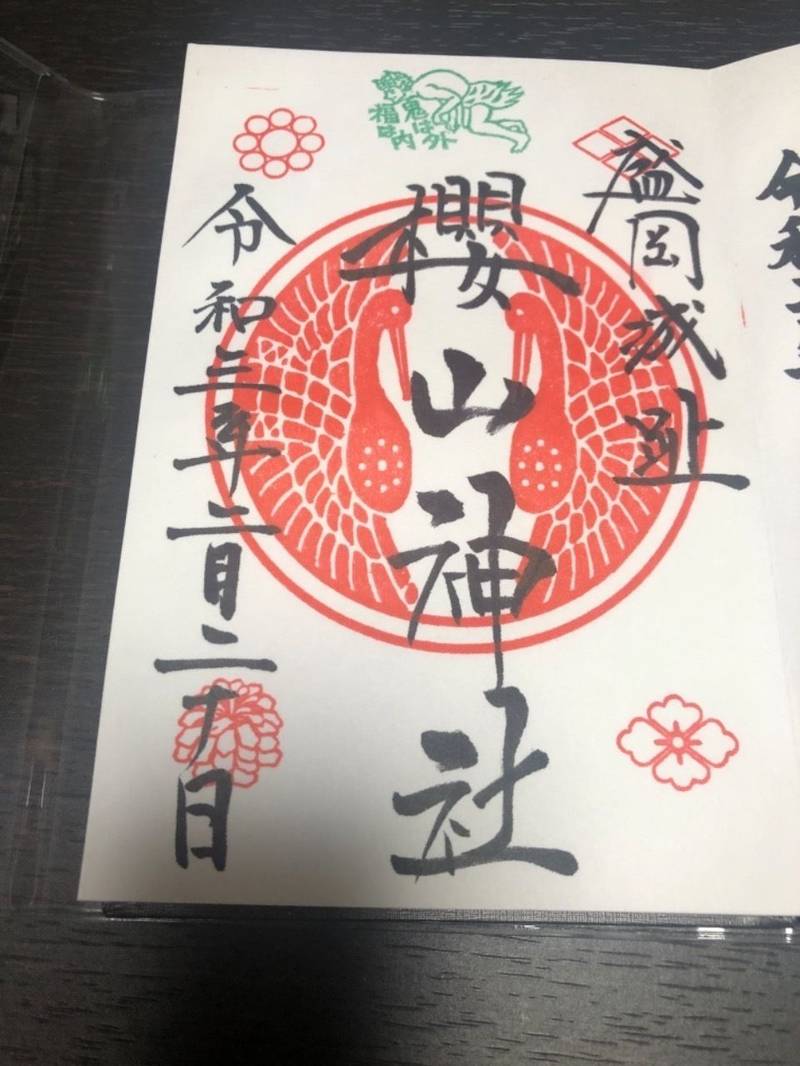 盛岡城趾
櫻山神社
令和三年二月二十日
鬼は外
福は内